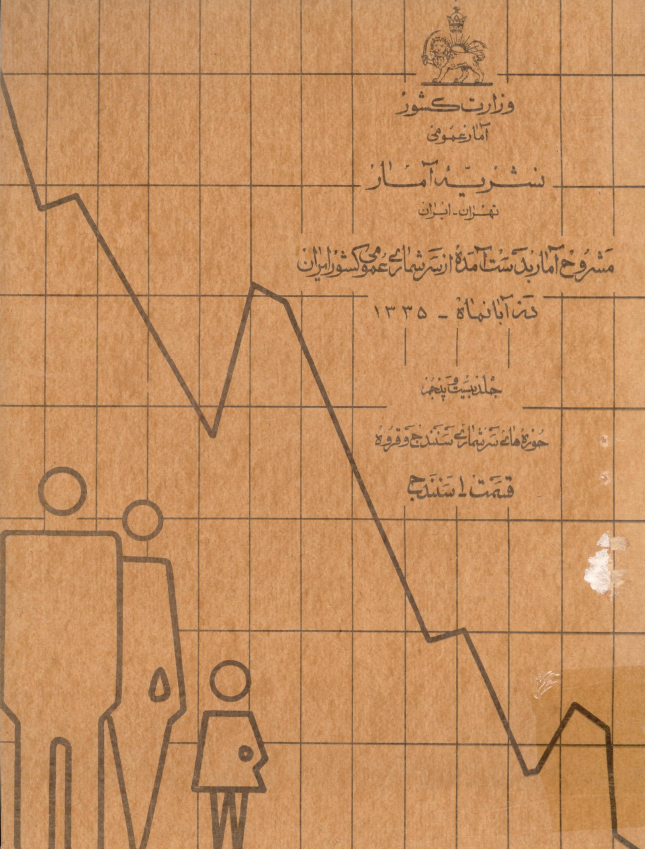 وزارت کشور
آمار عمومی
نشریه آمار
تهران - ایران
مشروح آمار بدست آمده از سرشماری عمومی کشور ایران
در آبانماه - ۱۳۳۵
جلد بیست و پنجم
حوزه های سرشماری سنندج و قروه
قسمت ۱ سنندج